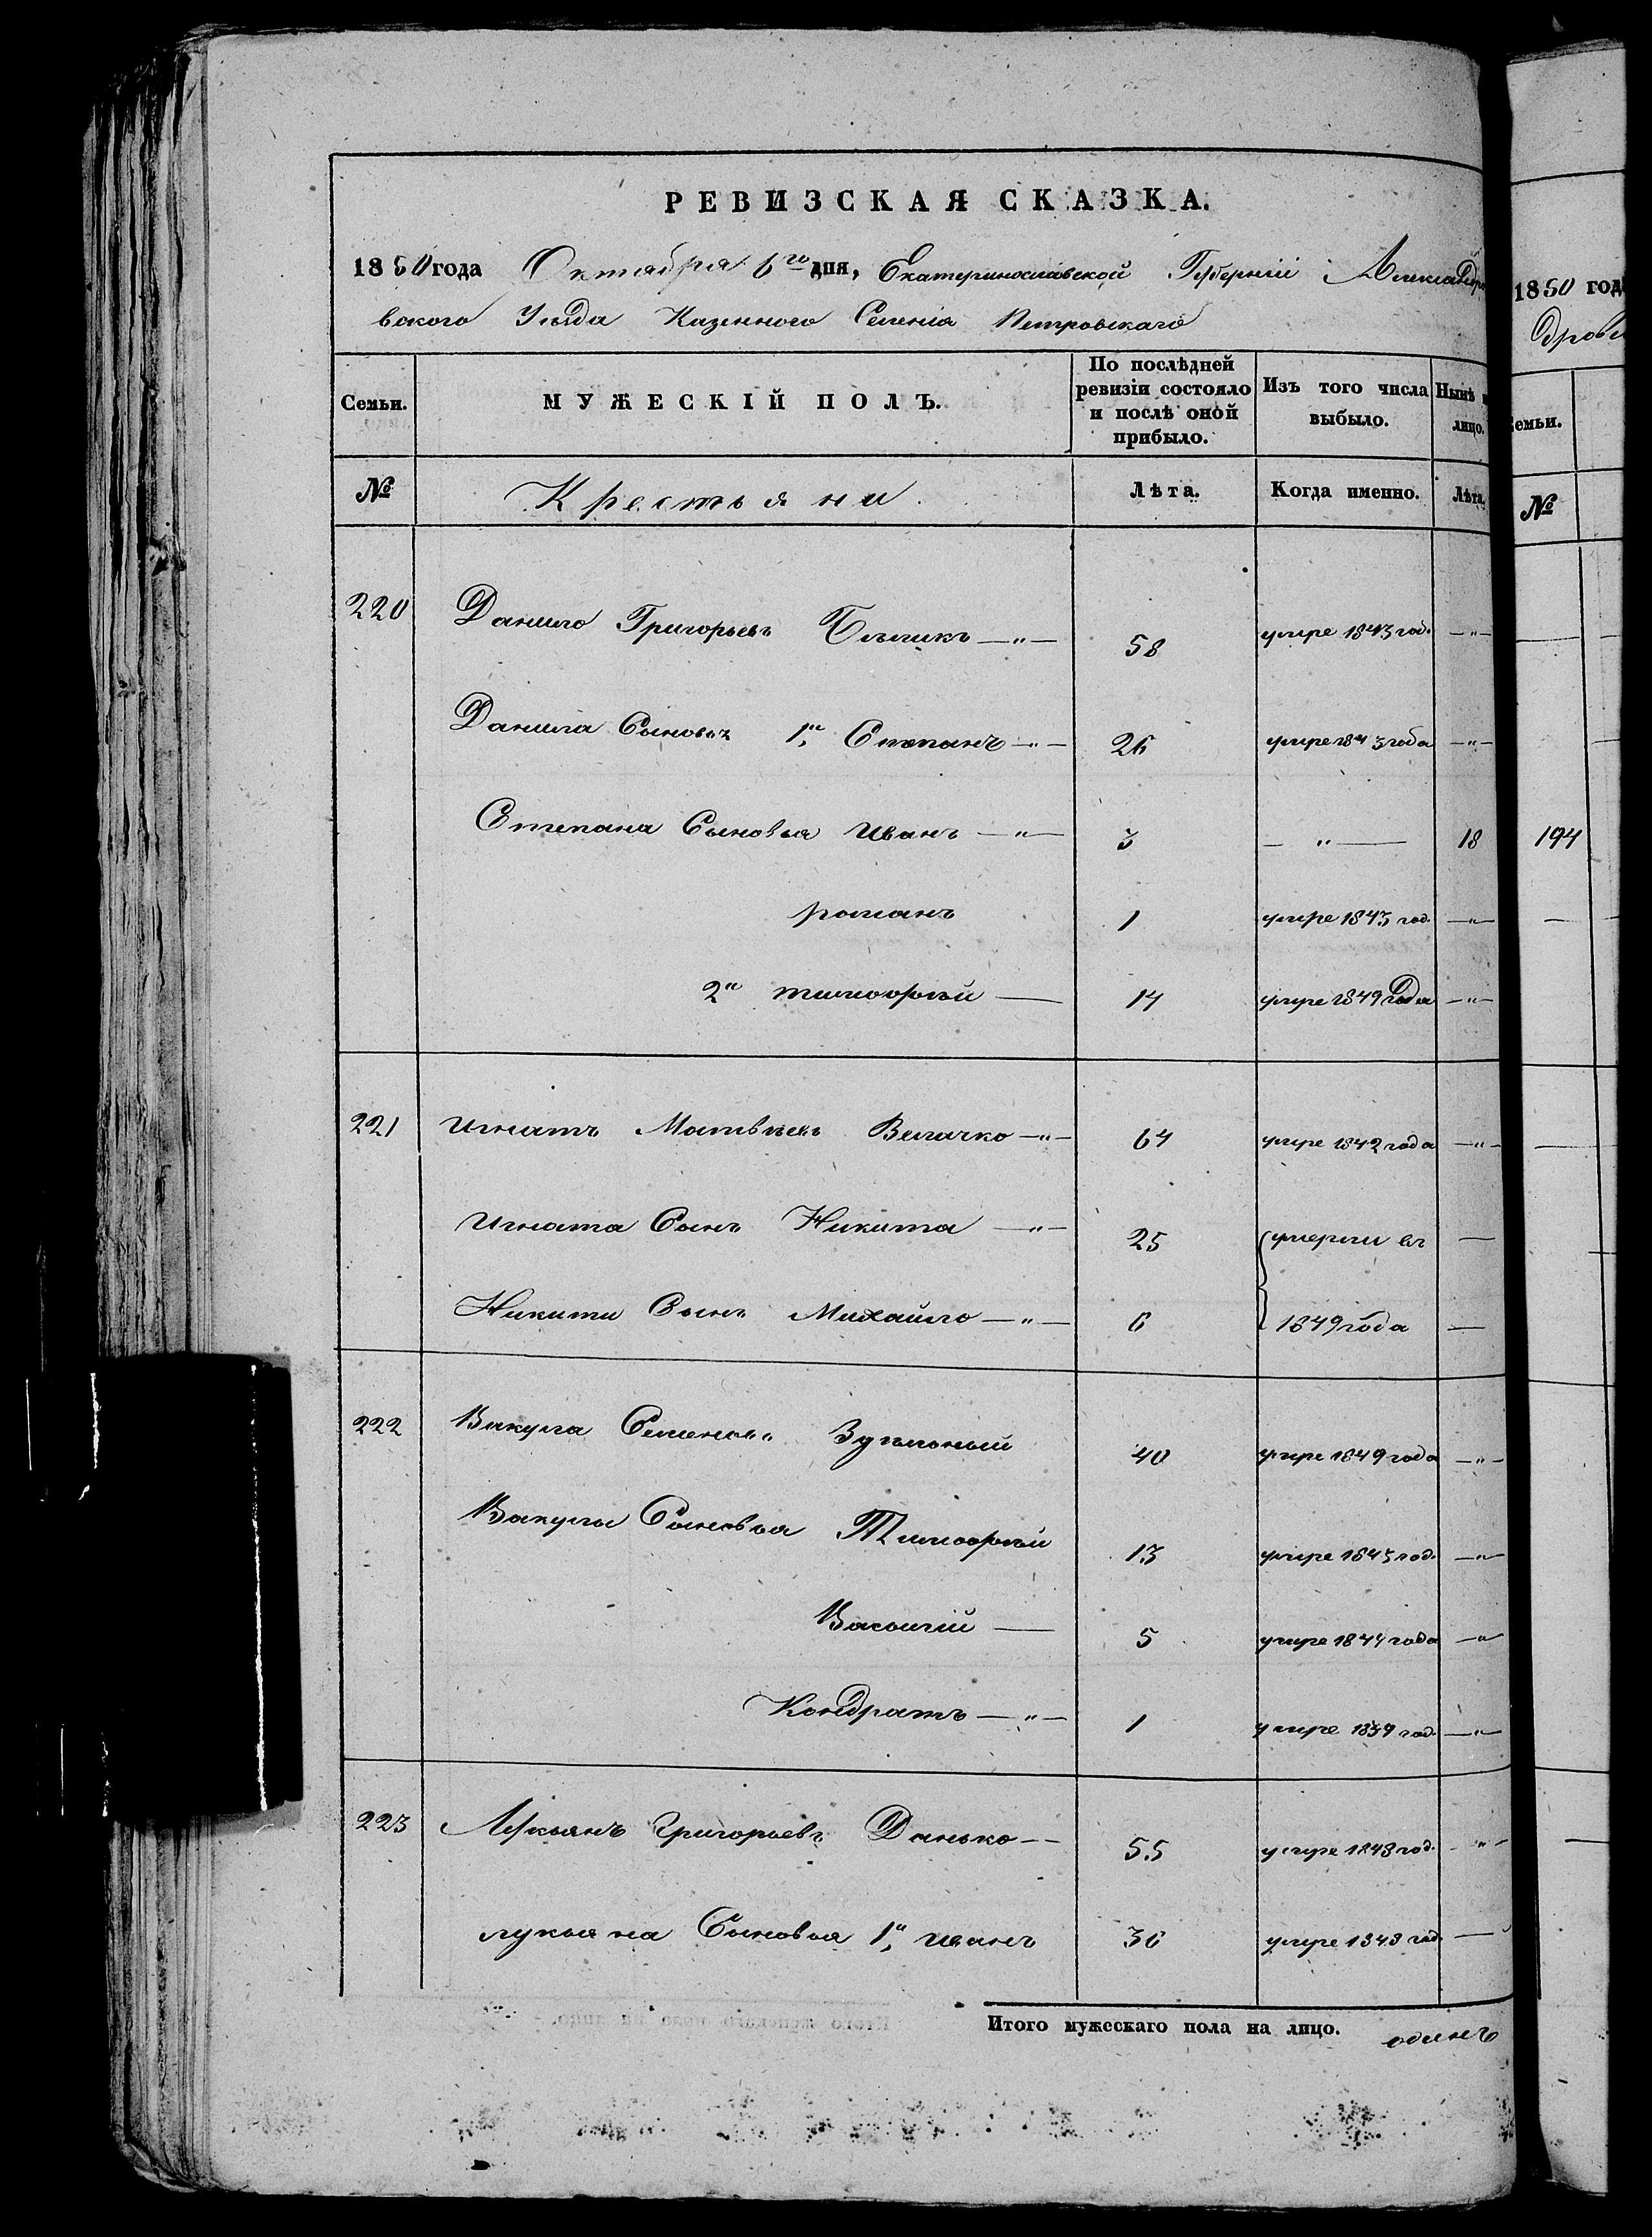 РЕВИЗСКАЯ СКАЗКА.
1850 года Октября 6го дня, Екатеринославской Губерніи Александро
вского Уезда Казенного Селенія Петровскаго
Семьи.
МУЖЕСКІЙ ПОЛЪ.
По послѣдней ревизіи состояло и послѣ оной прибыло.
Изъ того числа выбыло.
Нынѣ лицо.
№ Крестьяни. Лѣта. Когда именно. Лѣта.
220 Данило Григорьевъ 58 умре 1843 год. —"—
Данила Сыновья 1й Степанъ —"— 26 умре 1843 года —"—
Степана Сыновья Иванъ —"— 3 —"— 18
романъ 1 умре 1843 год. —"—
2й тимофѣй — 14 умре 1849 Года —"—
221 Игнатъ Матвѣевъ Величко —"— 64 умре 1842 года —"—
Игната Сынъ Никита —"— 25 умерли въ —
Никити Сынъ Михайло —"— 6 1849 года —
222 Вакула Семеновъ 40 умре 1849 года —"—
Вакулы Сыновья Тимофѣй 13 умре 1843 год. —"—
Василій — 5 умре 1844 года —"—
Кондратъ —"— 1 умре год. —"—
223 Лукьянъ Григорьевъ Данько — 55 умре 1848 год. —"—
лукьяна Сыновья 1й иванъ 36 умре 1848 год. —
Итого мужескаго пола на лицо. одинъ
1850 год
дров
емьи.
№
194